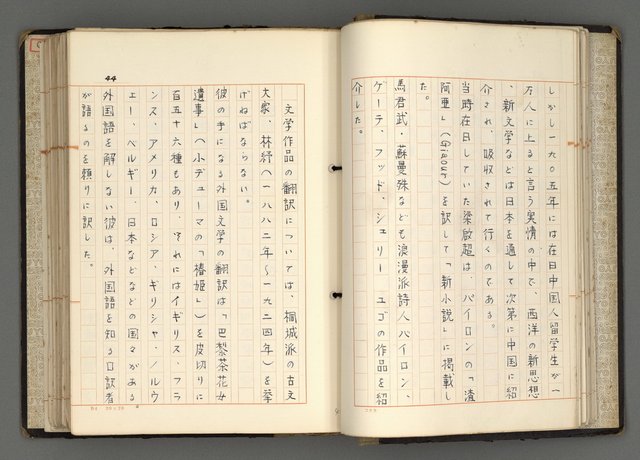 しかし一九〇五年には在日中国人留学生が一
万人に上ると言う実情の中で、西洋の新思想
、新文学などは日本を通して次第に中国に紹
介され、吸収されて行くのである。
当時在日していた梁啟超は、バイロンの「渣
阿亜」(Giaour)を訳して「新小説」に掲載し
た。
馬君武・蘇曼殊なども浪漫派詩人バイロン、
ゲーテ、フッド、シェリー ユゴの作品を紹
介した。
44
文学作品の翻訳については、桐城派の古文
大家、林紓(一八八二年〜一九二四年)を挙
げねばならない。
彼の手になる外国文学の翻訳は「巴黎茶花女
遺事」(小デューマの「椿姫」)を皮切りに
百五十六種もあり、それにはイギリス、フラ
ンス、アメリカ、ロシア、ギリシャ、ノルウ
ェー、ベルギー、日本などなどの国々がある
外国語を解しない彼は、外国語を知る口訳者
が語るのを頼りに訳した。